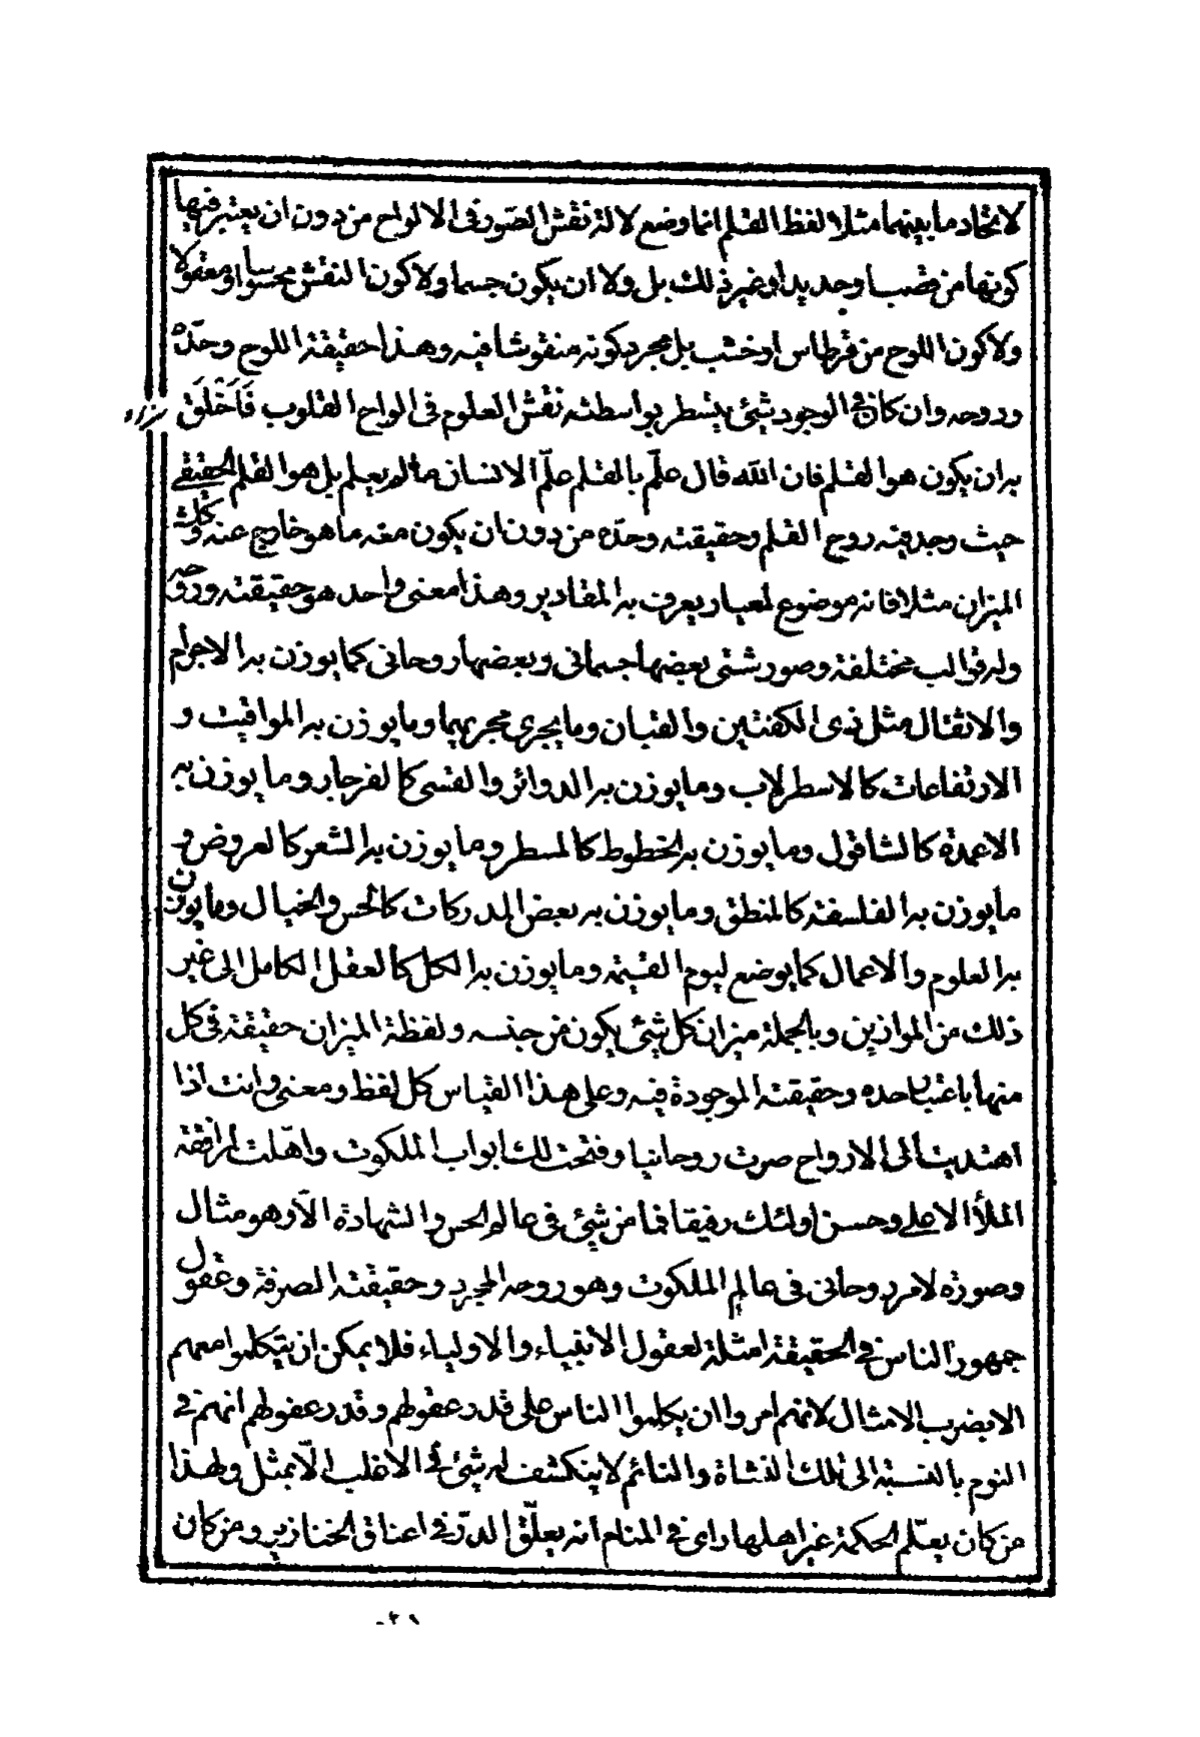 لاتحاد ما بينهما مثلا لفظ القلم انما وضع لالة نقش الصور فى الالواح من دون ان يعتبر فيها
كونها من قصب او حديد او غير ذلك بل ولا ان يكون جسما ولا كون النقش محسوسا او معقولا
ولا كون اللوح من قرطاس او خشب بل مجرد كونه منقوشا فيه وهذا حقيقة اللوح وحدّه
وروحه وان كان فى الوجود شئ يسطر بواسطته نقش العلوم فى الواح القلوب فَاَخْلَقَ
به ان يكون هو القلم فان الله قال علّم بالقلم علّم الانسان ما لم يعلم بل هو القلم الحقيقى
حيث وجد فيه روح القلم وحقيقته وحدّه من دون ان يكون معه ما هو خارج عنه وكذلك
الميزان مثلا فانه موضوع لمعيار يعرف به المقادير وهذا معنى واحد هو حقيقته وروحه
وله قوالب مختلفة وصور شتى بعضها جسمانى وبعضها روحانى كما يوزن به الاجرام
والاثقال مثل ذى الكفتين والقبان وما يجرى مجريهما وما يوزن به المواقيت و
الارتفاعات كالاسطرلاب وما يوزن به الدوائر والقسى كالفرجار وما يوزن به
الاعمدة كالشاقول وما يوزن به الخطوط كالمسطر وما يوزن به الشعر كالعروض و
ما يوزن به الفلسفة كالمنطق وما يوزن به بعض المدركات كالحس والخيال وما يوزن
به العلوم والاعمال كما يوضع ليوم القيمة وما يوزن به الكل كالعقل الكامل الى غير
ذلك من الموازين وبالجملة ميزان كل شئ يكون من جنسه ولفظة الميزان حقيقة فى كل
منها باعتبار حده وحقيقته الموجودة فيه وعلى هذا القياس كل لفظ ومعنى وانت اذا
اهتديت الى الارواح صرت روحانيا وفتحت لك ابواب الملكوت واهّلت لمرافقة
الملأ الاعلى وحسن اولئك رفيقا فما من شئ فى عالم الحس والشهادة الّا وهو مثال
وصورة لامر روحانى فى عالم الملكوت وهو روحه المجرد وحقيقته الصرفة وعقول
جمهور الناس فى الحقيقة امثلة لعقول الانبياء والاولياء فلا يمكن ان يتكلموا معهم
الا بضرب الامثال لانهم امروا ان يكلموا الناس على قدر عقولهم وقدر عقولهم انهم فى
النوم بالنسبة الى تلك النشاة والنائم لا ينكشف له شئ فى الاغلب الّا بمثل ولهذا
من كان يعلّم الحكمة غير اهلها راى فى المنام انه يعلّق الدرّ فى اعناق الخنازير ومن كان